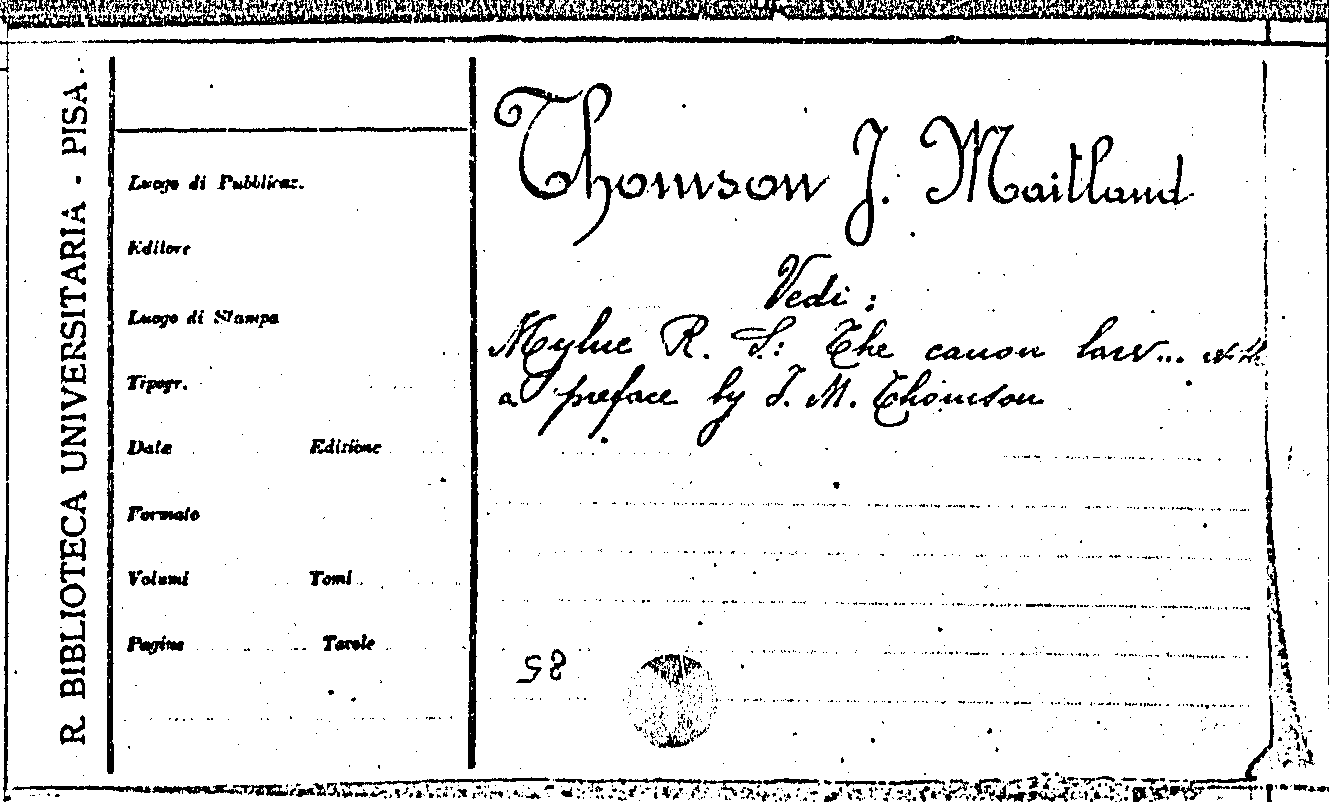 R. BIBLIOTECA UNIVERSITARIA - PISA.
Luogo di Pubblicaz.
Editore
Luogo di Stampa
Tipogr.
Data Edizione
Formato
Volumi Tomi
Pagine Tavole
Thomson J. Maitland
Vedi :
Mylne R. S.: The canon law... with
a preface by J. M. Thomson
58